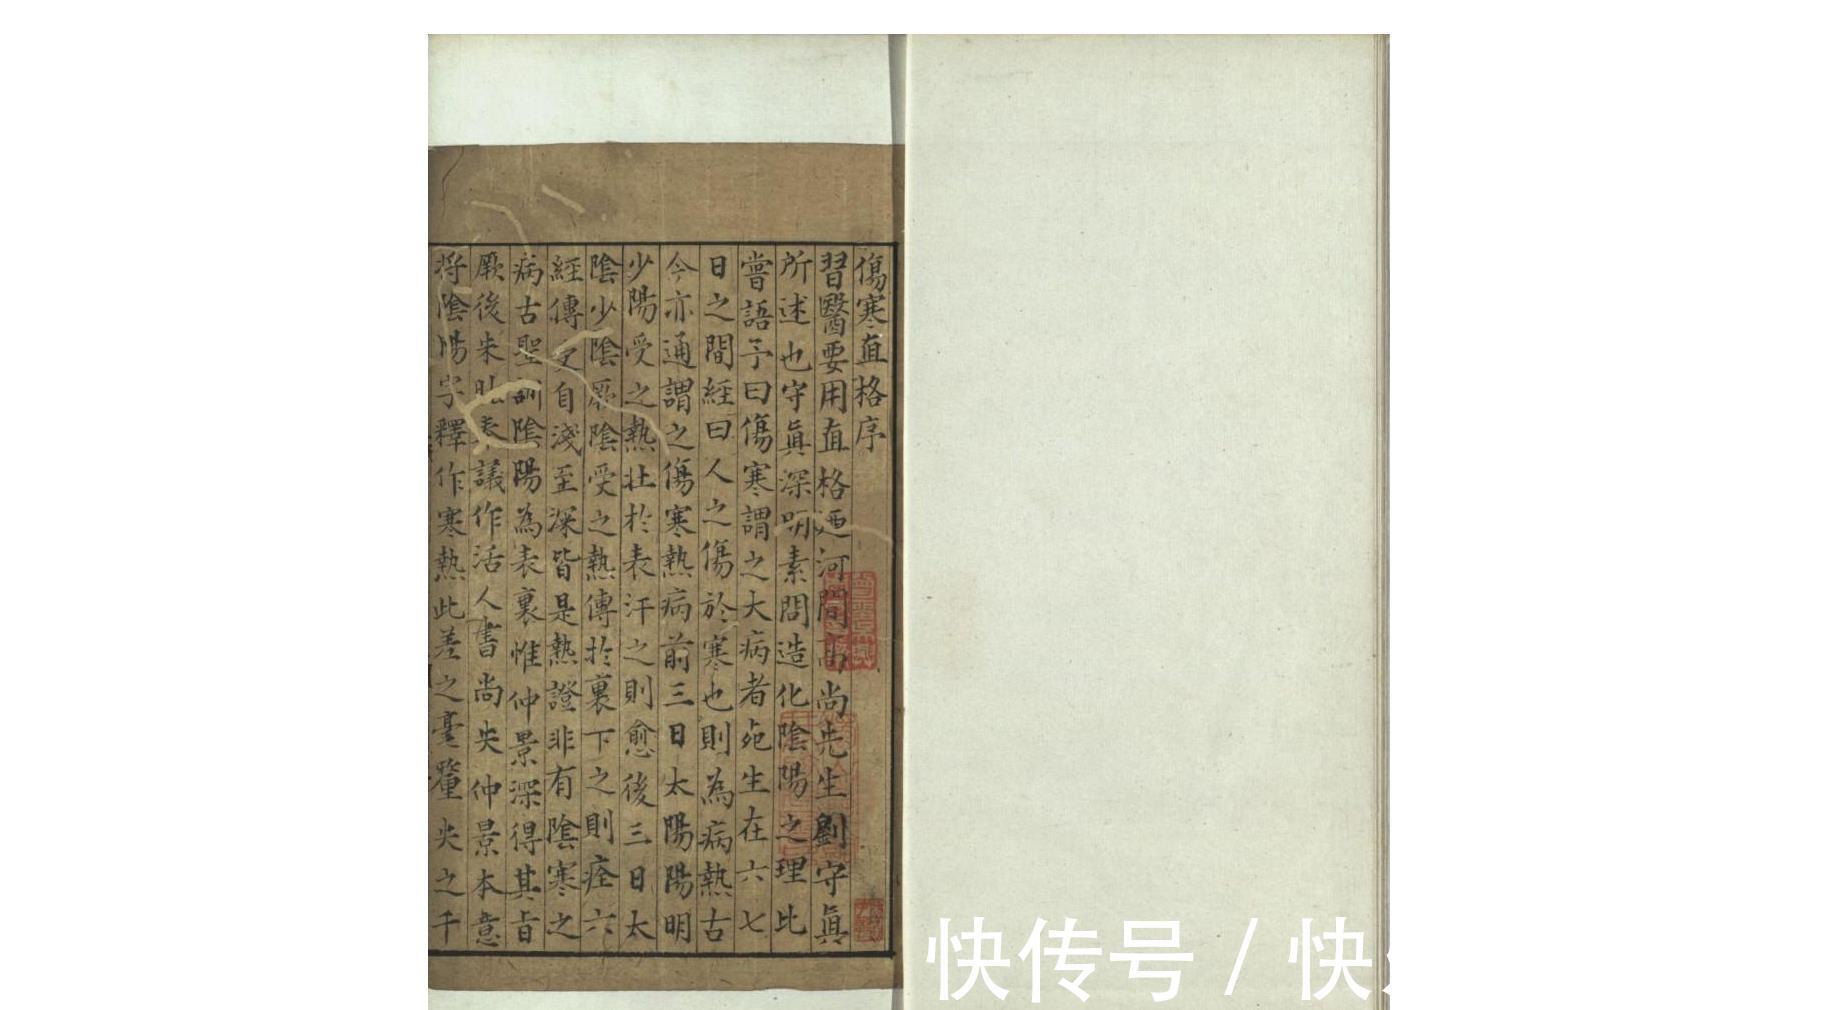 傷寒直格序
習醫要用直格迺河間高尚先生劉守眞
所述也守眞深明素問造化陰陽之理比
嘗語予曰傷寒謂之大病者死生在六七
日之間經曰人之傷於寒也則為病熱古
今亦通謂之傷寒熱病前三日太陽陽明
少陽受之熱壯於表汗之則愈後三日太
陰少陰厥陰受之熱傳於裏下之則痊六
經傳受自淺至深皆是熱證非有陰寒之
病古聖訓陰陽為表裏惟仲景深得其旨
厥後朱肱表議作活人書尚失仲景本意
將陰陽字釋作寒熱此差之毫釐失之千
快传号/快